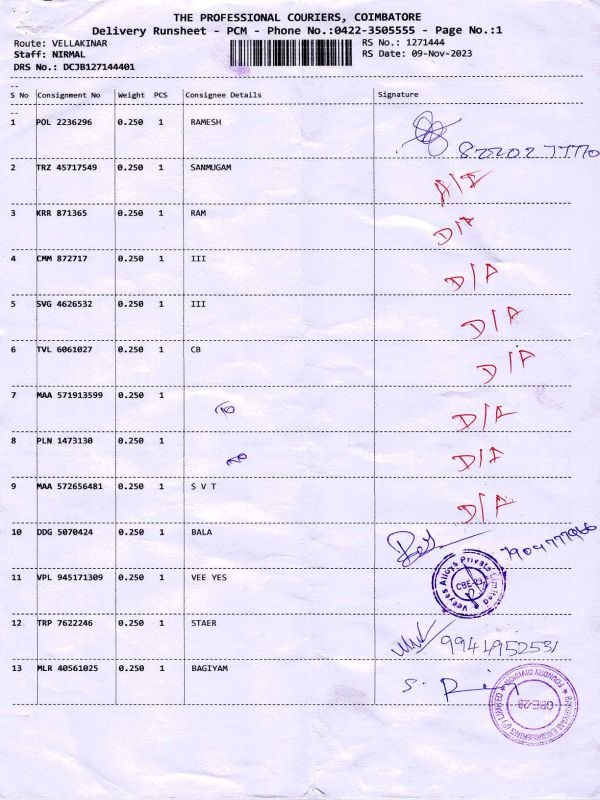 THE PROFESSIONAL COURIERS, COIMBATORE
Delivery Runsheet - PCM - Phone No.:0422-3505555 - Page No.:1
Route: VELLAKINAR RS No.: 1271444
Staff: NIRMAL RS Date: 09-Nov-2023
DRS No.: DCJB127144401
S No Consignment No Weight PCS Consignee Details Signature
1 POL 2236296 0.250 1 RAMESH
2 TRZ 45717549 0.250 1 SANMUGAM
3 KRR 871365 0.250 1 RAM D/A
4 CMM 872717 0.250 1 III D/A
5 SVG 4626532 0.250 1 III D/A
6 TVL 6061027 0.250 1 CB D/A
7 MAA 571913599 0.250 1 D/A
8 PLN 1473130 0.250 1 D/A
9 MAA 572656481 0.250 1 S V T D/A
10 DDG 5070424 0.250 1 BALA
11 VPL 945171309 0.250 1 VEE YES
Veeyes Alloys Private Limited
CBE-29
12 TRP 7622246 0.250 1 STAER 9944952531
13 MLR 40561025 0.250 1 BAGIYAM
CBE-29